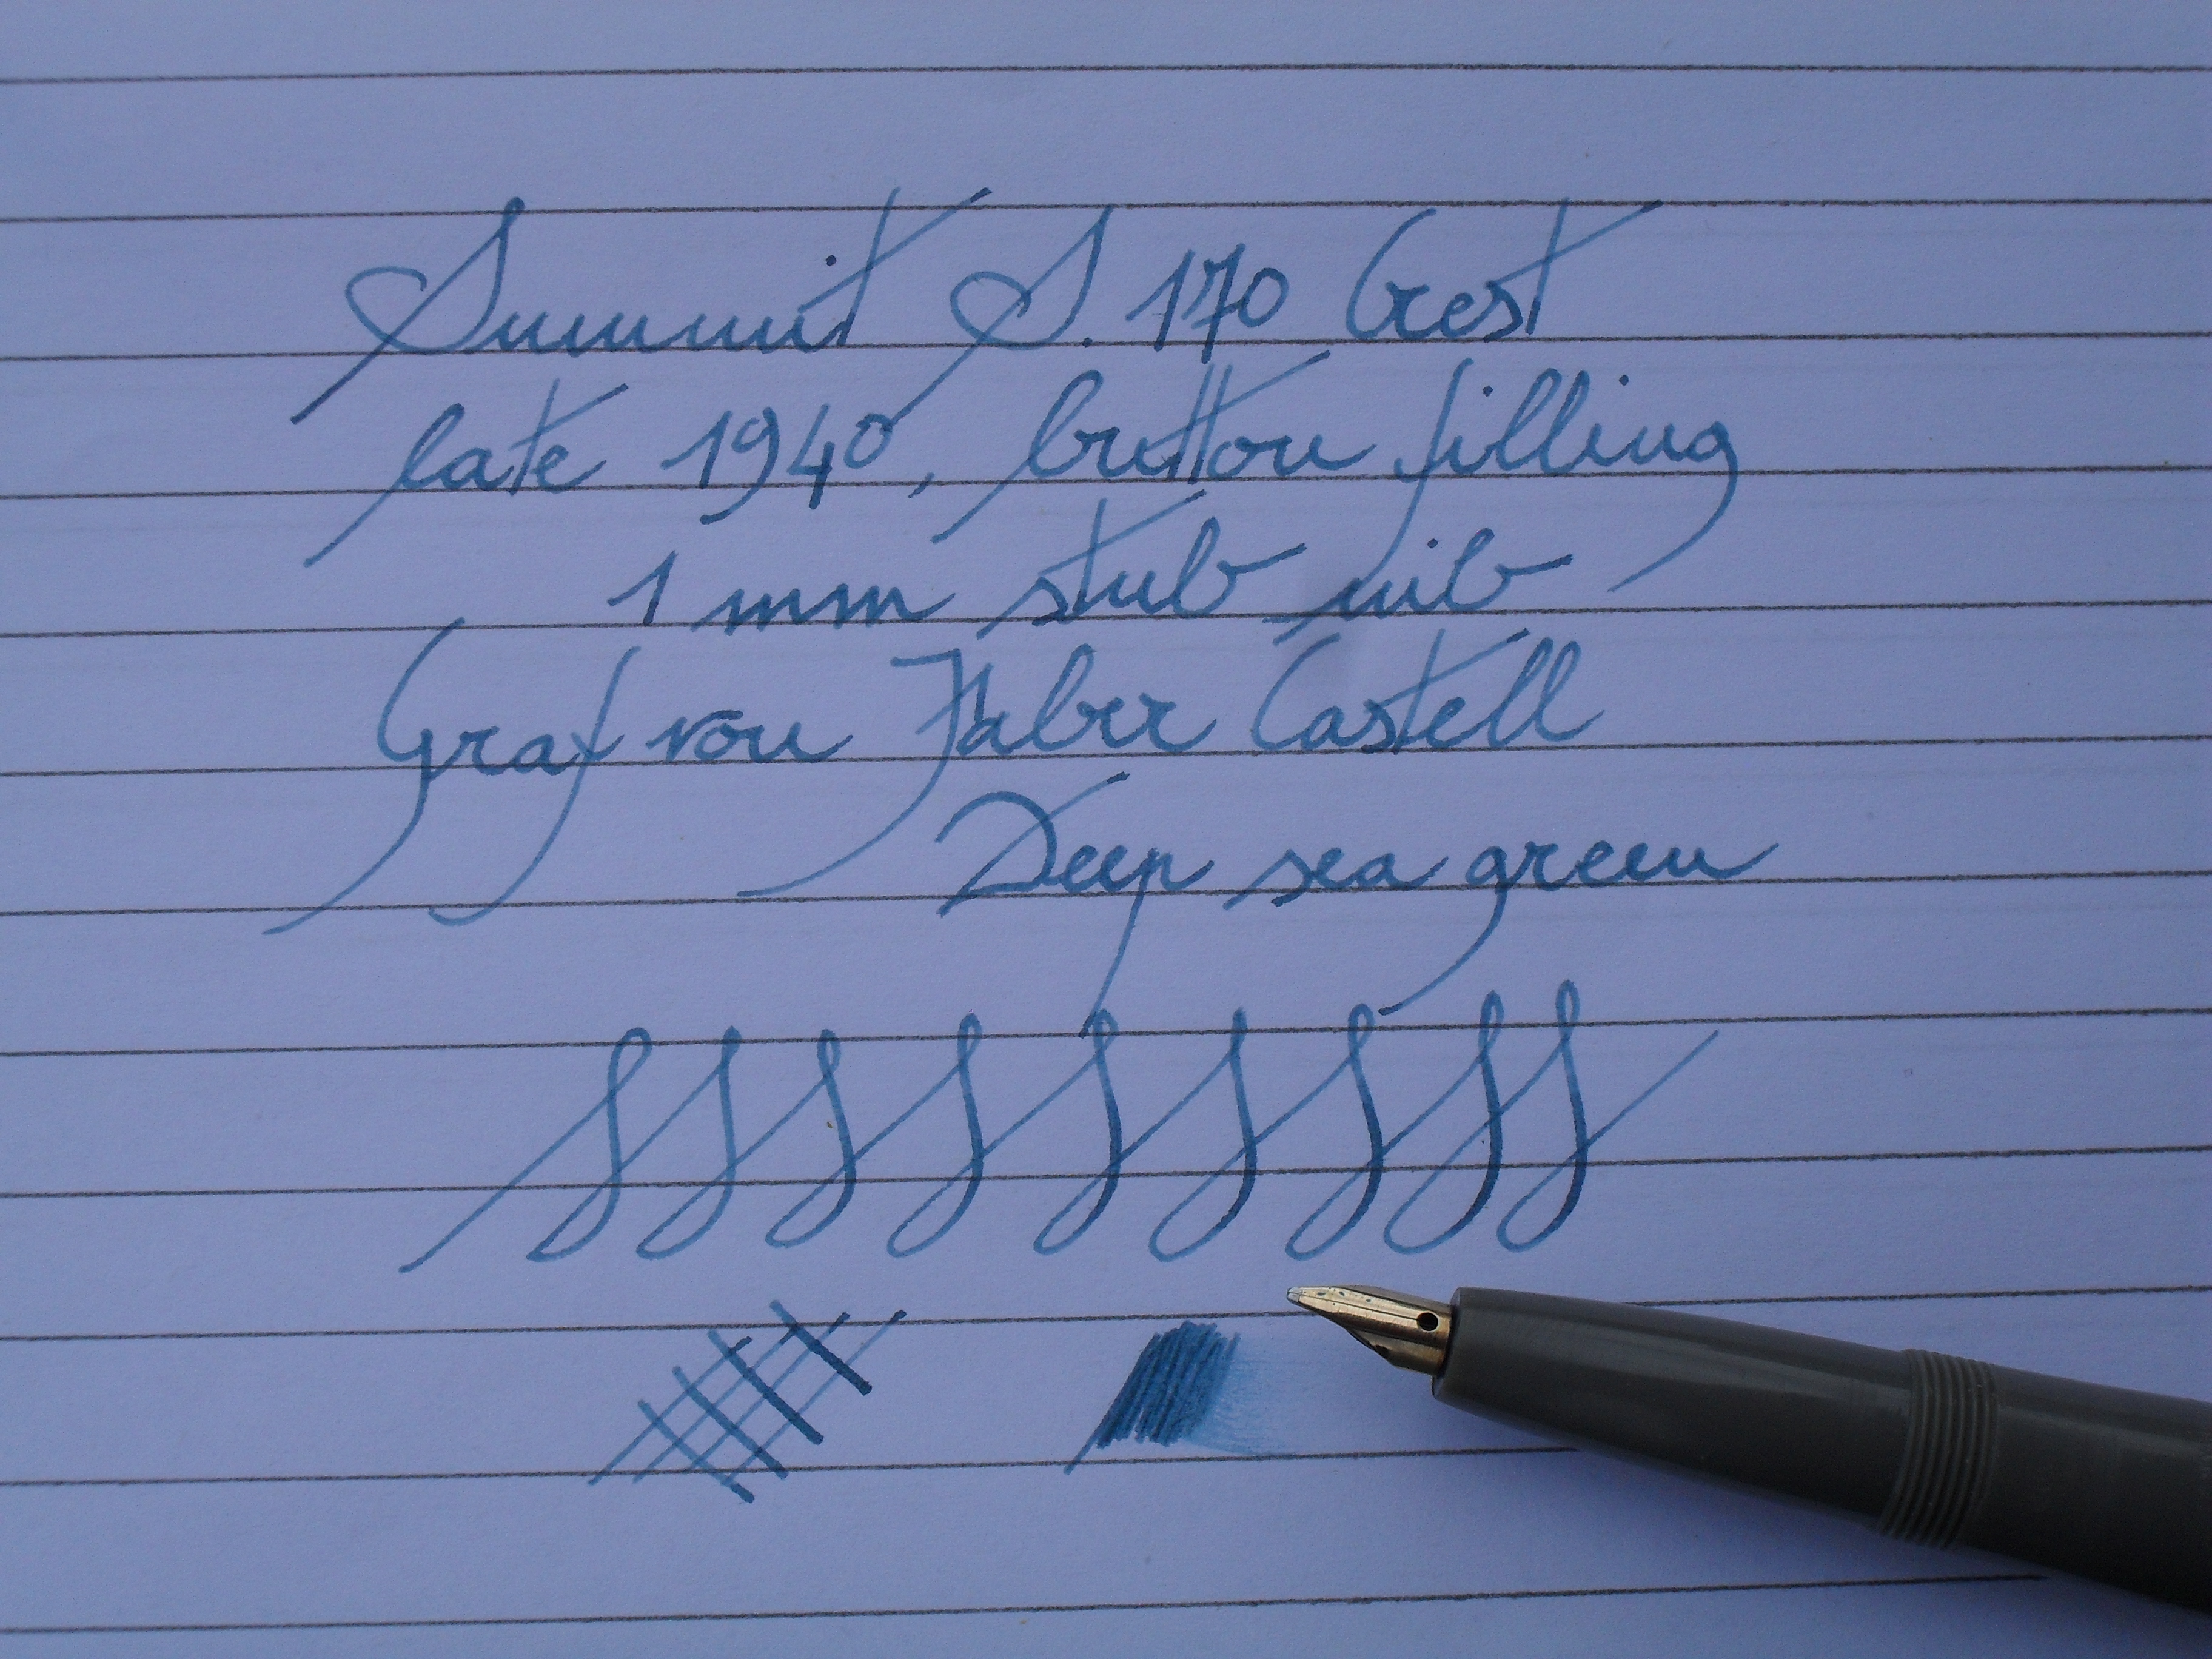 Summit S. 170 Crest
late 1940, button filling
1 mm stub nib
Graf von Faber Castell
Deep sea green